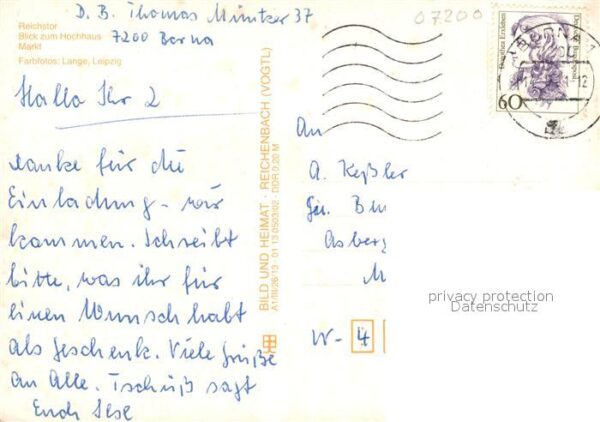 D. B. Thomas Müntzer 37
7200 Borna
Reichstor
Blick zum Hochhaus
Markt
Farbfotos: Lange, Leipzig
Hallo Ihr 2
danke für die
Einladung - wir
kommen. Schreibt
bitte, was ihr für
einen Wunsch habt
als Geschenk. Viele Grüße
an Alle. Tschüß sagt
Euch Ilse
BILD UND HEIMAT · REICHENBACH (VOGTL)
A1/IV/26/13 · 01 13 0503/02 · DDR 0,20 M
07200
60
12
An
A. Keßler
Asberg
W- 4
privacy protection
Datenschutz